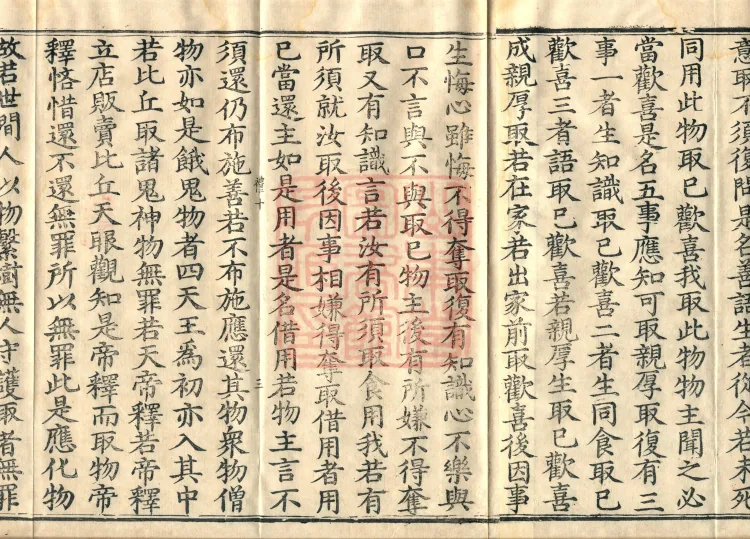 意取不須後問是名善説生者後今若未死
同用此物取已歡喜我取此物物主聞之必
當歡喜是名五事應知可取親厚取復有三
事一者生知識取已歡喜二者生同食取已
歡喜三者語取已歡喜若親厚生取已歡喜
成親厚取若在家若出家前取歡喜後因事
生悔心雖悔不得奪取復有知識心不樂與
口不言與不與取已物主後有所嫌不得奪
取又有知識言若汝有所須取食用我若有
所須就汝取後因事相嫌得奪取借用者用
已當還主如是用者是名借用若物主言不
須還仍布施善若不布施應還其物衆物僧
物亦如是餓鬼物者四天王爲初亦入其中
若比丘取諸鬼神物無罪若天帝釋若帝釋
立店販賣比丘天眼觀知是帝釋而取物帝
釋悋惜還不還無罪所以無罪此是應化物
故若世間人以物繫樹無人守護取者無罪